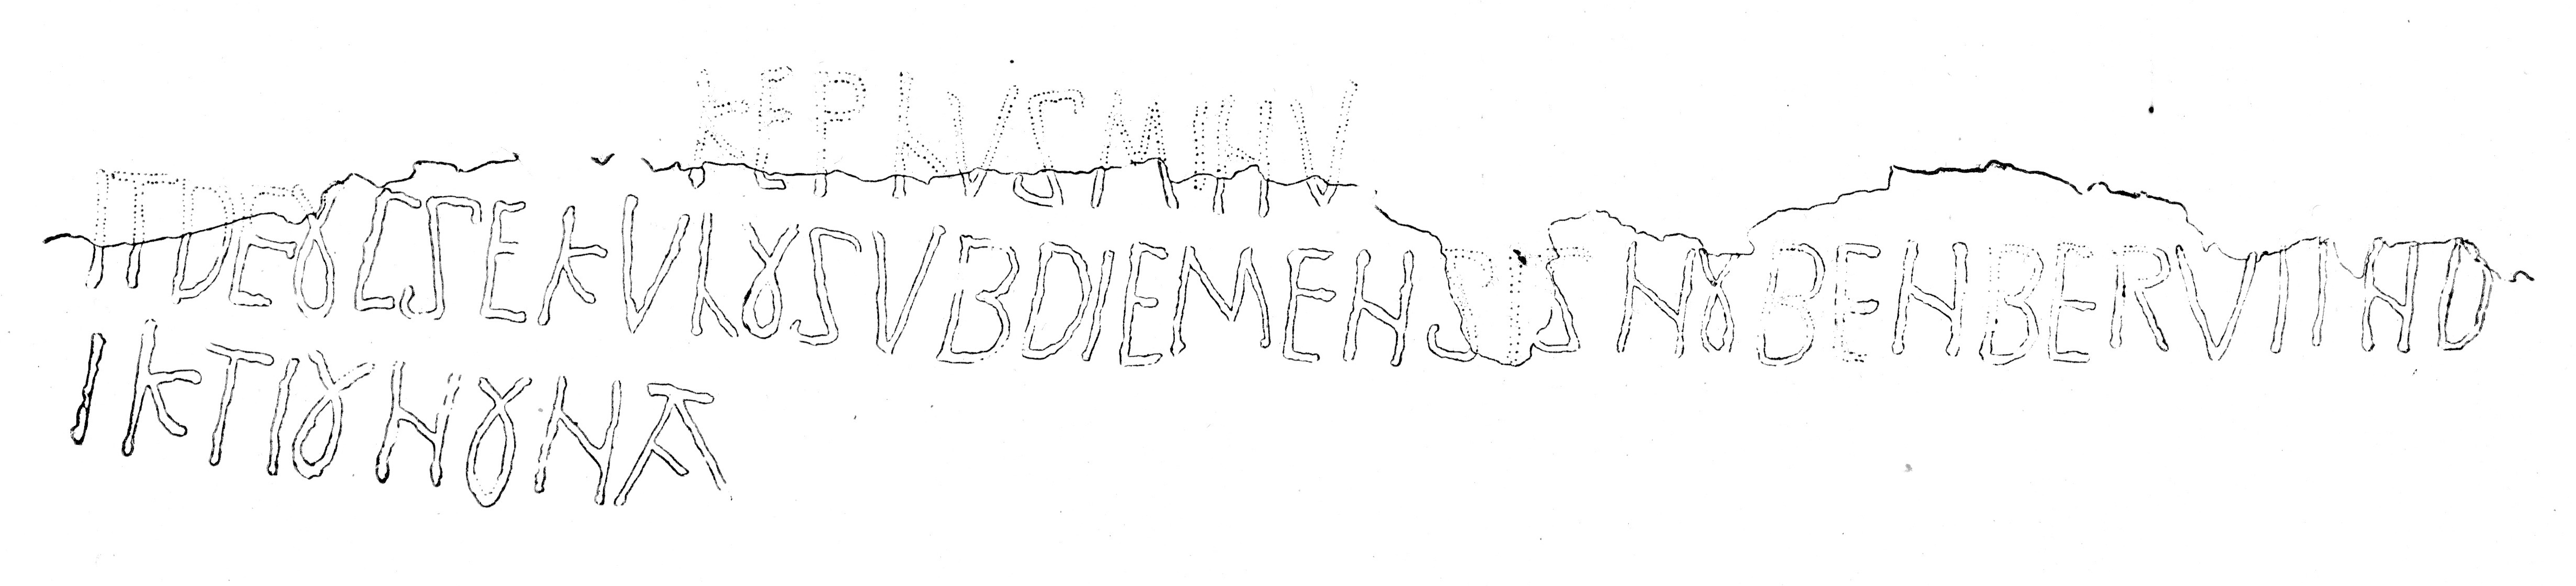 KEPLVSMINV
ITDEOCSEKVLOSVBDIEMENSISNOBENBERVIIND
IKTIONONA